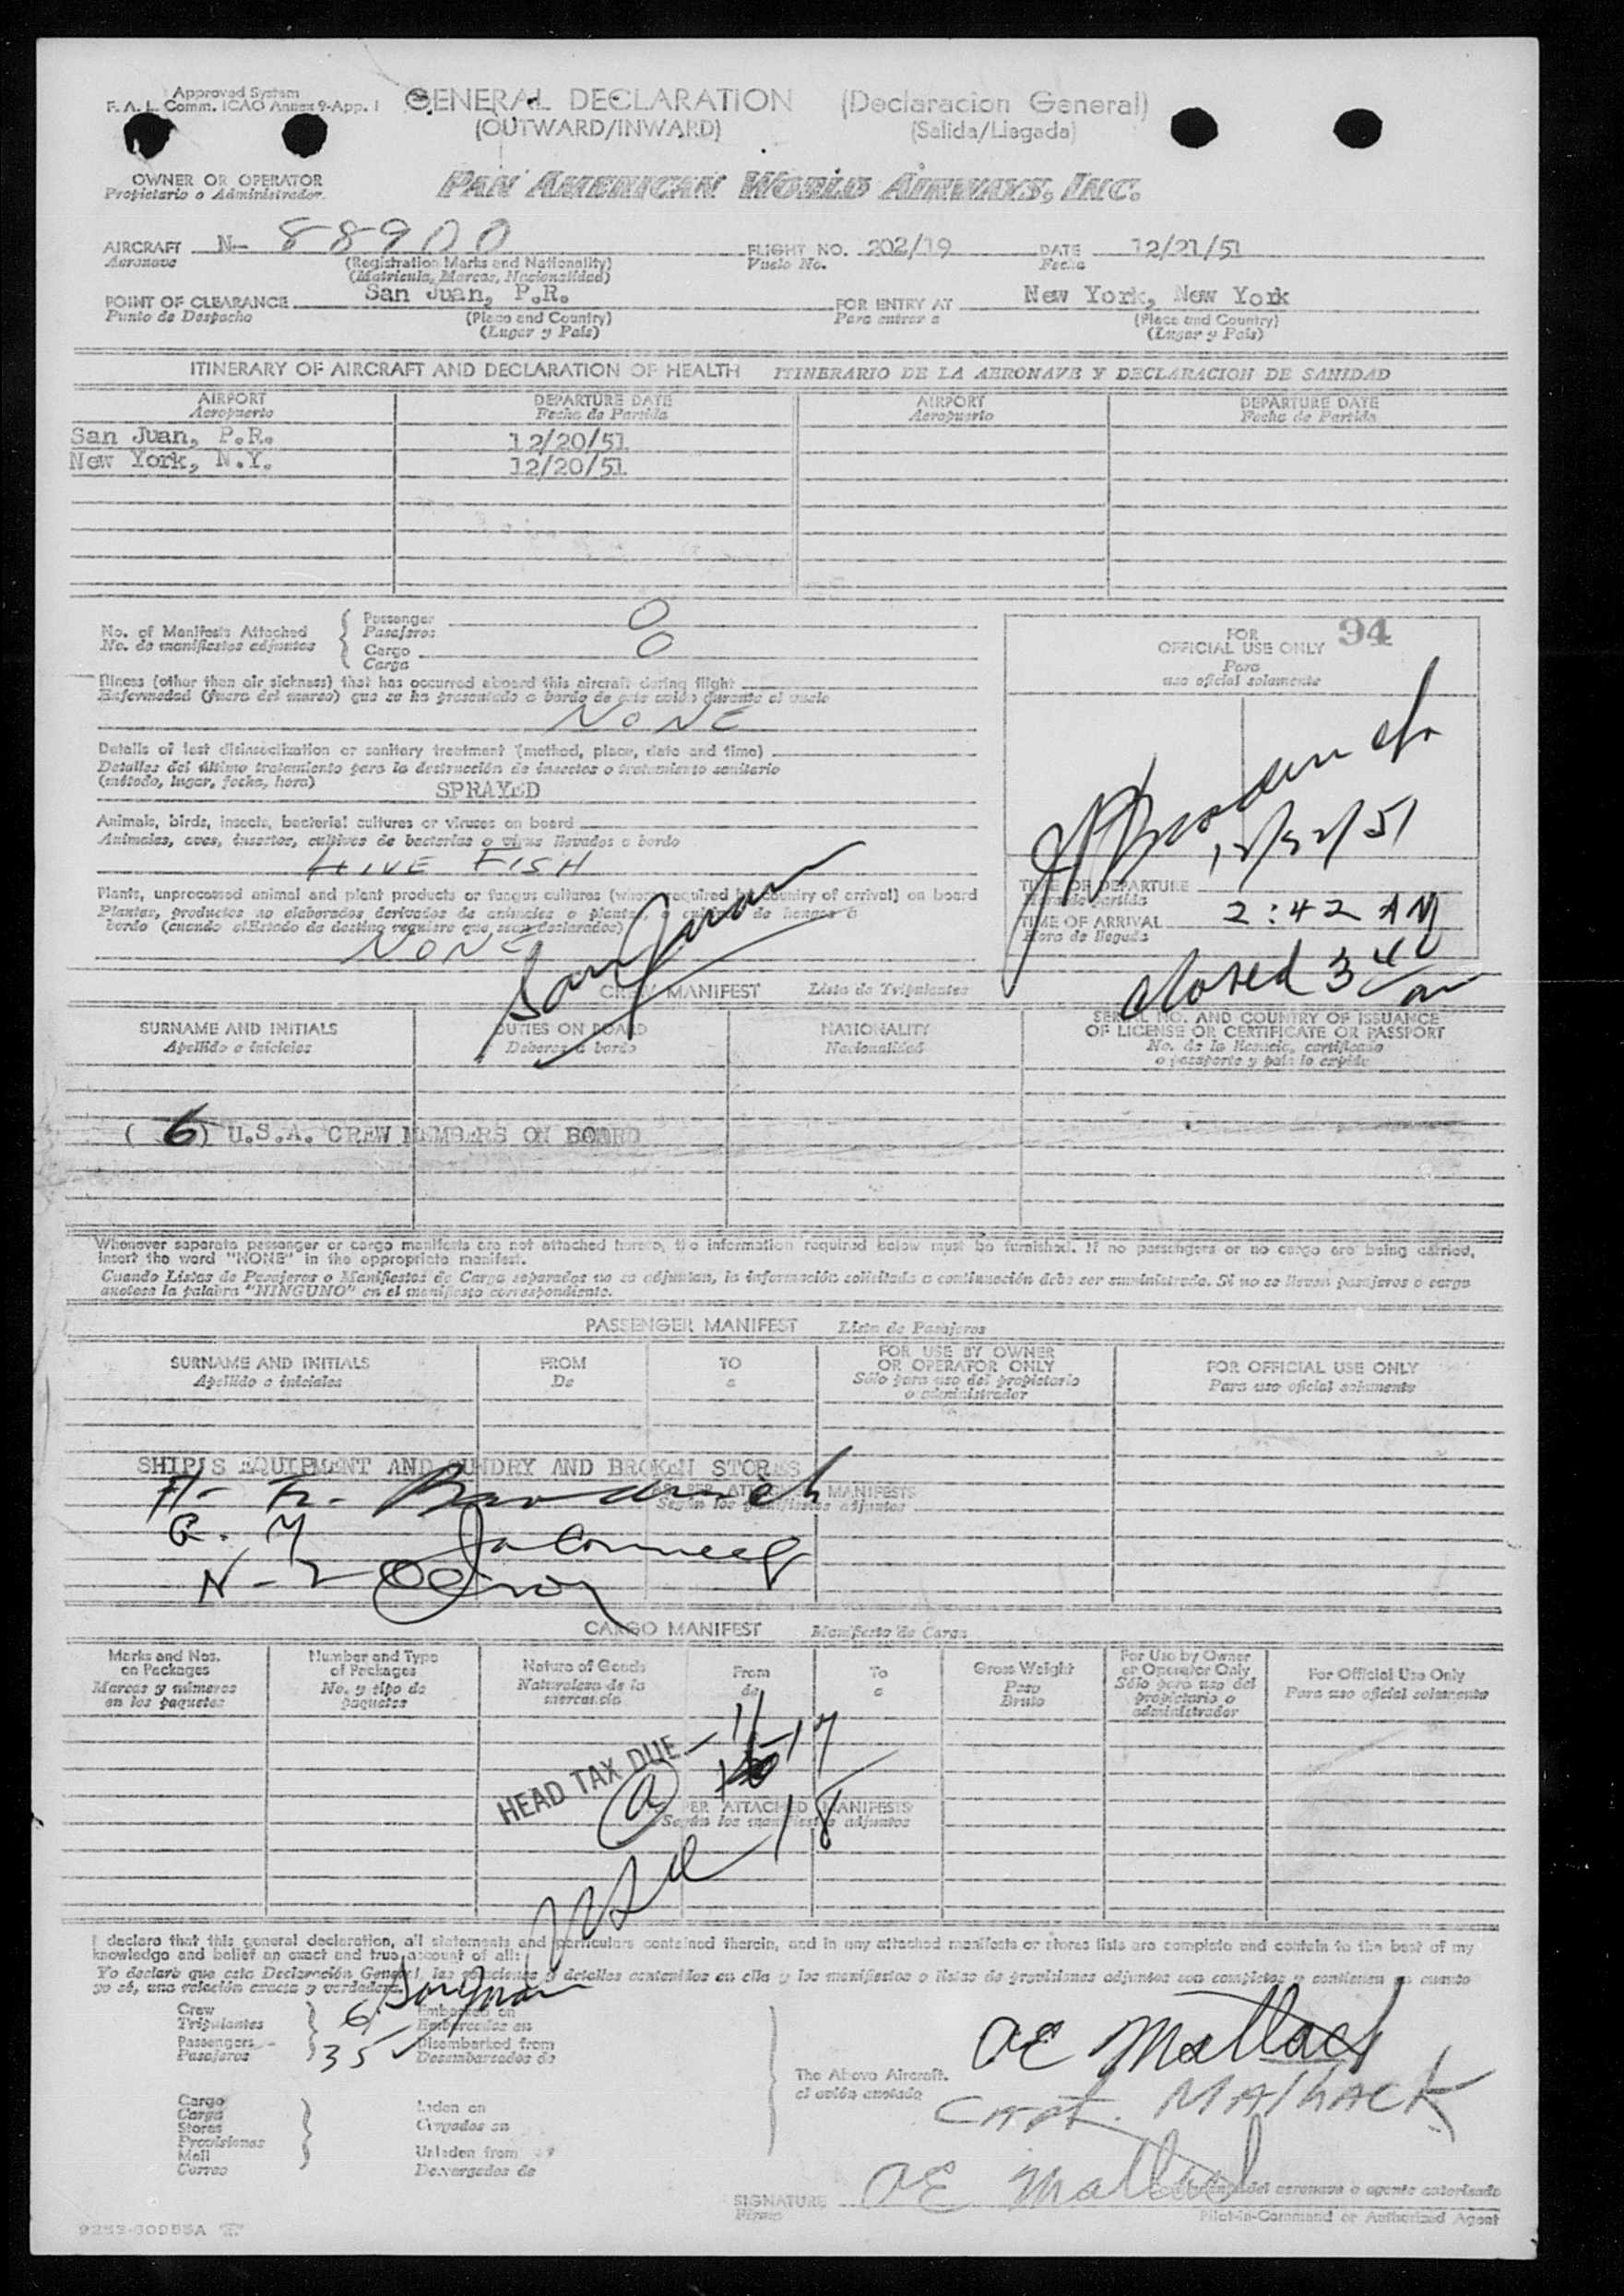 Approved System
F. A. L. Comm. ICAO Annex 9-App. 1
GENERAL DECLARATION (Declaracion General)
(OUTWARD/INWARD) (Salida/Llegada)
OWNER OR OPERATOR
Propietario o Administrador
PAN AMERICAN WORLD AIRWAYS, INC.
AIRCRAFT N- 88900 FLIGHT NO. 202/19 DATE 12/21/51
Aeronave (Registration Marks and Nationality) Vuelo No. Fecha
(Matricula, Marcas, Nacionalidad)
POINT OF CLEARANCE San Juan, P.R. FOR ENTRY AT New York, New York
Punto de Despacho (Place and Country) Para entrar a (Place and Country)
(Lugar y País) (Lugar y País)
ITINERARY OF AIRCRAFT AND DECLARATION OF HEALTH ITINERARIO DE LA AERONAVE Y DECLARACION DE SANIDAD
AIRPORT DEPARTURE DATE AIRPORT DEPARTURE DATE
Aeropuerto Fecha de Partida Aeropuerto Fecha de Partida
San Juan, P.R. 12/20/51
New York, N.Y. 12/20/51
No. of Manifests Attached
No. de manifiestos adjuntos
Passenger 0
Pasajeros
Cargo 0
Carga
FOR OFFICIAL USE ONLY 94
Para uso oficial solamente
Illness (other than air sickness) that has occurred aboard this aircraft during flight
Enfermedad (fuera del mareo) que se ha presentado a bordo de este avión durante el vuelo
NONE
Details of last disinsectization or sanitary treatment (method, place, date and time)
Detalles del último tratamiento para la destrucción de insectos o tratamiento sanitario
(método, lugar, fecha, hora)
SPRAYED
Animals, birds, insects, bacterial cultures or viruses on board
Animales, aves, insectos, cultivos de bacterias o virus llevados a bordo
LIVE FISH
Plants, unprocessed animal and plant products or fungus cultures (where required by country of arrival) on board
Plantas, productos no elaborados derivados de animales o plantas, o cultivos de hongos a
bordo (cuando el Estado de destino requiere que sean declarados)
NONE
San Juan
TIME OF DEPARTURE
Hora de partida
TIME OF ARRIVAL 2:42 AM
Hora de llegada
closed 3 40 am
CREW MANIFEST Lista de Tripulantes
SURNAME AND INITIALS DUTIES ON BOARD NATIONALITY SERIAL NO. AND COUNTRY OF ISSUANCE
OF LICENSE OR CERTIFICATE OR PASSPORT
Apellido e iniciales Deberes a bordo Nacionalidad No. de la licencia, certificado
o pasaporte y país lo expide
( 6) U.S.A. CREW MEMBERS ON BOARD
Whenever separate passenger or cargo manifests are not attached hereto, the information required below must be furnished. If no passengers or no cargo are being carried,
insert the word "NONE" in the appropriate manifest.
Cuando Listas de Pasajeros o Manifiestos de Carga separados no se adjuntan, la información solicitada a continuación debe ser suministrada. Si no se llevan pasajeros o carga
anotese la palabra "NINGUNO" en el manifiesto correspondiente.
PASSENGER MANIFEST Lista de Pasajeros
SURNAME AND INITIALS FROM TO FOR USE BY OWNER OR OPERATOR ONLY FOR OFFICIAL USE ONLY
Apellido e iniciales De a Sólo para uso del propietario o administrador Para uso oficial solamente
SHIP'S EQUIPMENT AND SUNDRY AND BROKEN STORES
AS PER ATTACHED MANIFESTS
Según los manifiestos adjuntos
CARGO MANIFEST Manifiesto de Carga
Marks and Nos. on Packages
Marcas y números en los paquetes
Number and Type of Packages
No. y tipo de paquetes
Nature of Goods
Naturaleza de la mercancía
From
de
To
a
Gross Weight
Peso Bruto
For Use by Owner or Operator Only
Sólo para uso del propietario o administrador
For Official Use Only
Para uso oficial solamente
HEAD TAX DUE
PER ATTACHED MANIFESTS
Según los manifiestos adjuntos
I declare that this general declaration, all statements and particulars contained therein, and in any attached manifests or stores lists are complete and contain to the best of my
knowledge and belief an exact and true account of all:
Yo declaro que esta Declaración General, las relaciones y detalles contenidos en ella y los manifiestos o listas de provisiones adjuntos son completos y contienen en cuanto
yo sé, una relación exacta y verdadera
San Juan
Crew 6 Embarked on
Tripulantes Embarcados en
Passengers 35 Disembarked from
Pasajeros Desembarcados de
The Above Aircraft.
el avión anotado
Cargo
Carga
Stores
Provisiones
Mail
Correo
Laden on
Cargados en
Unladen from
Descargados de
Capt.
SIGNATURE
Firma
del aeronave o agente autorizado
Pilot-in-Command or Authorized Agent